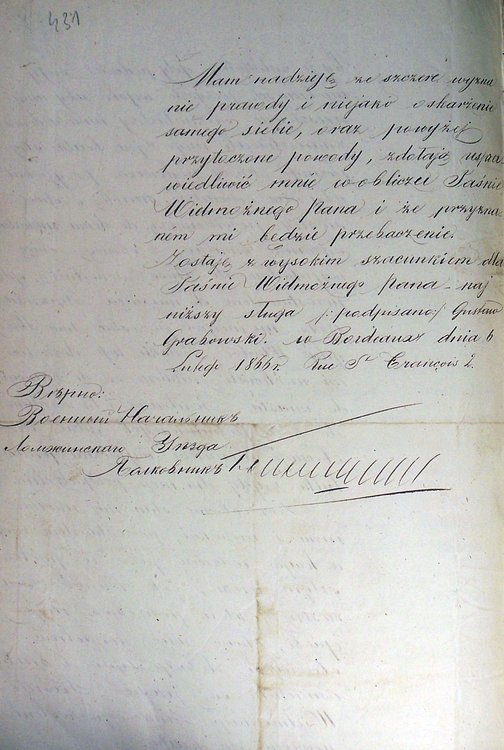 431
Mam nadzieję że szczere wyzna
nie prawdy i niejako oskarżenie
samego siebie, oraz powyżej
przytoczone powody, zdołają uspra
wiedliwić mnie w obliczu Jaśnie
Wielmożnego Pana i że przyzna
ném mi będzie przebaczenie.
Zostaję z wysokim szacunkiem dla
Jaśnie Wielmożnego Pana naj
niższy sługa /: podpisano:/ Gustaw
Grabowski. w Bordeaux dnia 6
Lutego 1866 r. Rue St François 2.
Вѣрно:
Военный Начальникъ
Ломжинскаго Уѣзда
Полковникъ